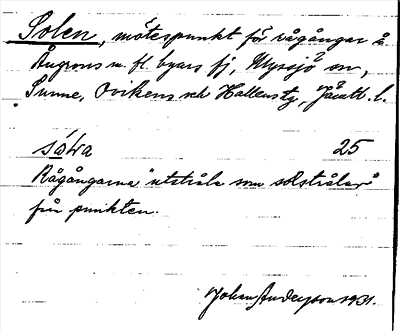 Solen, mötespunkt för rågångar å
Ångrons m. fl. byars fj, Myssjö sn,
Sunne, Ovikens och Hallens tg, Jämtl. l.
sóɫra 25
Rågångarna "utstråla som solstrålar"
från punkten.
Johan Anderson 1931.